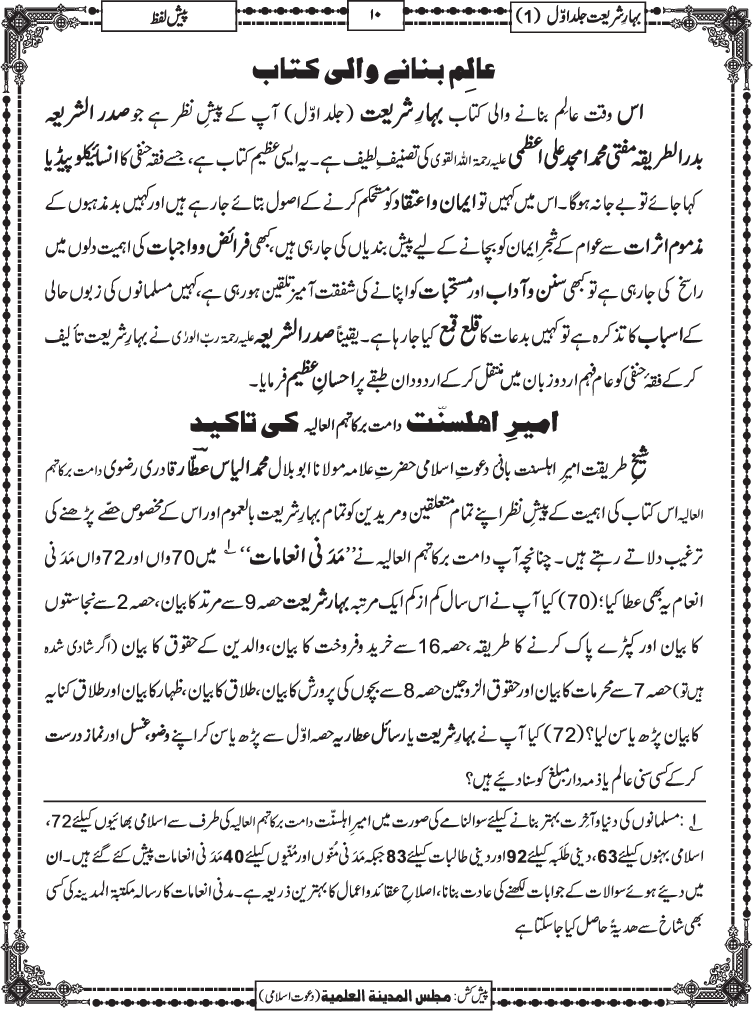 بہارِ شریعت جلد اوّل (1)
۱۰
پیش لفظ
عالِم بنانے والی کتاب
اس وقت عالِم بنانے والی کتاب بہارِ شریعت (جلد اوّل) آپ کے پیشِ نظر ہے جو صدر الشریعہ
بدر الطریقہ مفتی محمد امجد علی اعظمی علیہ رحمۃ اللہ القوی کی تصنیفِ لطیف ہے۔ یہ ایسی عظیم کتاب ہے، جسے فقہ حنفی کا انسائیکلوپیڈیا
کہا جائے تو بے جا نہ ہوگا۔ اس میں کہیں تو ایمان و اعتقاد کو مستحکم کرنے کے اصول بتائے جارہے ہیں اور کہیں بدمذہبوں کے
مذموم اثرات سے عوام کے شجرِ ایمان کو بچانے کے لیے پیش بندیاں کی جارہی ہیں، کبھی فرائض و واجبات کی اہمیت دلوں میں
راسخ کی جارہی ہے تو کبھی سنن و آداب اور مستحبات کو اپنانے کی شفقت آمیز تلقین ہورہی ہے، کہیں مسلمانوں کی زبوں حالی
کے اسباب کا تذکرہ ہے تو کہیں بدعات کا قلع قمع کیا جارہا ہے۔ یقیناً صدر الشریعہ علیہ رحمۃ ربّ الورٰی نے بہارِ شریعت تألیف
کرکے فقہِ حنفی کو عام فہم اردو زبان میں منتقل کرکے اردو دان طبقے پر احسانِ عظیم فرمایا۔
امیرِ اهلسنّت دامت برکاتہم العالیہ کی تاکید
شیخِ طریقت امیرِ اہلسنت بانیٔ دعوتِ اسلامی حضرتِ علامہ مولانا ابو بلال محمد الیاس عطّار قادری رضوی دامت برکاتہم
العالیہ اس کتاب کی اہمیت کے پیشِ نظر اپنے تمام متعلقین و مریدین کو تمام بہارِ شریعت بالعموم اور اس کے مخصوص حصّے پڑھنے کی
ترغیب دلاتے رہتے ہیں۔ چنانچہ آپ دامت برکاتہم العالیہ نے ’’مَدَنی انعامات‘‘ ۱؎ میں 70واں اور 72واں مَدَنی
انعام یہ بھی عطا کیا؛ (70) کیا آپ نے اس سال کم از کم ایک مرتبہ بہارِ شریعت حصہ 9 سے مرتد کا بیان، حصہ 2 سے نجاستوں
کا بیان اور کپڑے پاک کرنے کا طریقہ، حصہ 16 سے خرید وفروخت کا بیان، والدین کے حقوق کا بیان (اگر شادی شدہ
ہیں تو) حصہ 7 سے محرمات کا بیان اور حقوق الزوجین حصہ 8 سے بچوں کی پرورش کا بیان، طلاق کا بیان، ظہار کا بیان اور طلاق کنایہ
کا بیان پڑھ یا سن لیا؟ (72) کیا آپ نے بہارِ شریعت یا رسائل عطاریہ حصہ اوّل سے پڑھ یا سن کر اپنے وضو، غسل اور نماز درست
کرکے کسی سنی عالم یا ذمہ دار مبلغ کو سنا دیئے ہیں؟
۱؎ : مسلمانوں کی دنیا و آخرت بہتر بنانے کیلئے سوالنامے کی صورت میں امیرِ اہلسنّت دامت برکاتہم العالیہ کی طرف سے اسلامی بھائیوں کیلئے 72،
اسلامی بہنوں کیلئے 63، دینی طَلَبہ کیلئے 92 اور دینی طالبات کیلئے 83 جبکہ مَدَنی مُنّوں اور مُنّیوں کیلئے 40 مَدَنی انعامات پیش کئے گئے ہیں۔ ان
میں دیئے ہوئے سوالات کے جوابات لکھنے کی عادت بنانا، اصلاحِ عقائد و اعمال کا بہترین ذریعہ ہے۔ مدنی انعامات کا رسالہ مکتبۃ المدینہ کی کسی
بھی شاخ سے ھدیۃً حاصل کیا جاسکتا ہے
پیش کش: مجلس المدينة العلمية (دعوت اسلامی)